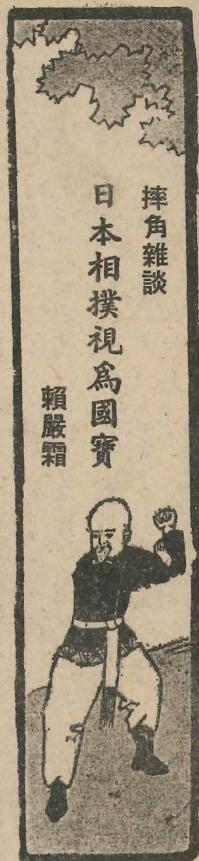 摔角雜談
日本相撲視爲國寶
賴嚴霜